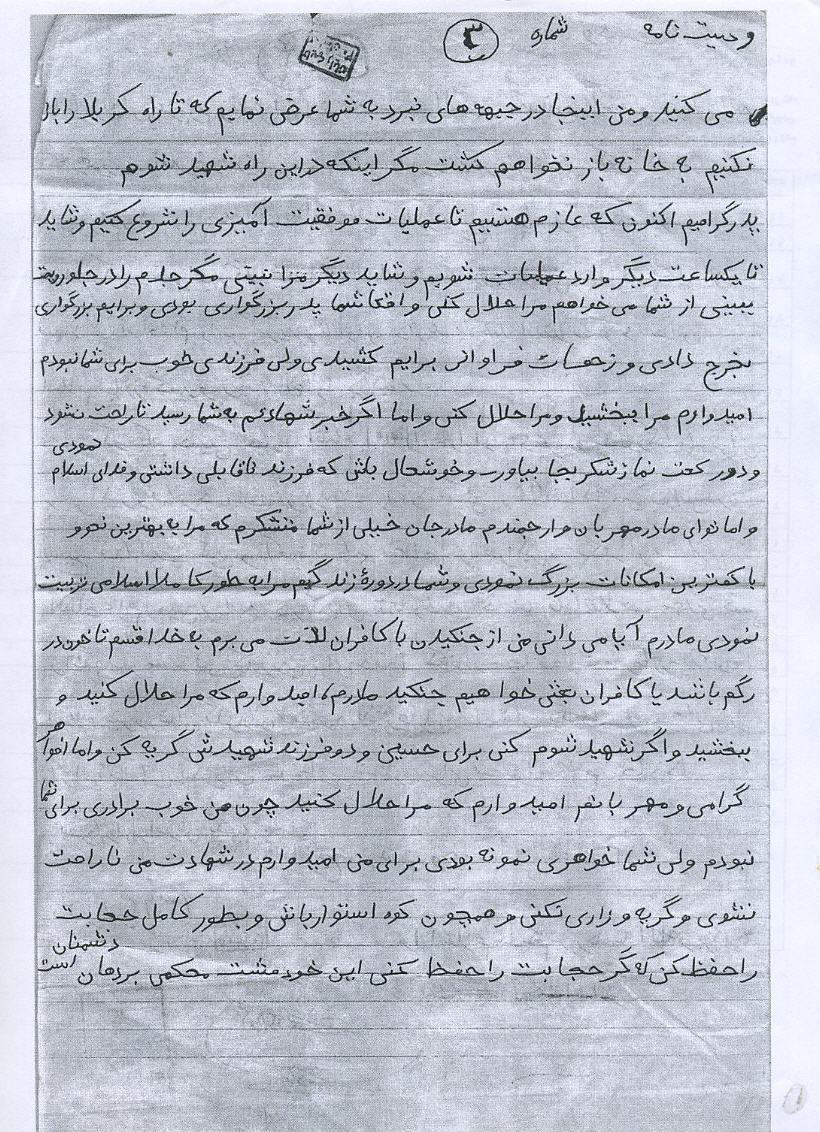 وصیت نامه شماره ۳
می کنید و من اینجا در جبهه های نبرد به شما عرض نمایم که تا راه کربلا را باز
نکنیم به خانه باز نخواهم گشت مگر اینکه در این راه شهید شوم
پدر گرامیم اکنون که عازم هستیم تا عملیات موفقیت آمیزی را شروع کنیم و شاید
تا یکساعت دیگر وارد عملیات شویم و شاید دیگر مرا نبینی مگر جلدم را در جلو رویت
ببینی از شما می خواهم مرا حلال کنی واقعا شما پدر بزرگواری بودی و برایم بزرگواری
بخرج دادی و زحمات فراوانی برایم کشیدی ولی فرزندی خوب برای شما نبودم
امیدوارم مرا ببخشید و مرا حلال کنی و اما اگر خبر شهادتم به شما رسید ناراحت نشود
و دو رکعت نماز شکر بجا بیاور و خوشحال باش که فرزند ناقابلی داشتی و فدای اسلام نمودی
و اما توای مادر مهربان و ارجمندم مادر جان خیلی از شما متشکرم که مرا به بهترین نحو و
با کمترین امکانات بزرگ نمودی و شما در دورۀ زندگیم مرا به طور کاملا اسلامی تربیت
نمودی مادرم آیا می دانی من از جنگیدن با کافران لذت می برم به خدا قسم تا خون در
رگم باشد با کافران بعثی خواهیم جنگید مادرم، امیدوارم که مرا حلال کنید و
ببخشید و اگر شهید شوم کنی برای حسین و دو فرزند شهیدش گریه کن و اما خواهر
گرامی و مهربانم امیدوارم که مرا حلال کنید چون من خوب برادری برای شما
نبودم ولی شما خواهری نمونه بودی برای من امیدوارم در شهادت من ناراحت
نشوی و گریه و زاری نکنی و همچون کوه استوار باش و بطور کامل حجابت
را حفظ کن که گر حجابت را حفظ کنی این خود مشت محکمی بر دهان دشمنان است